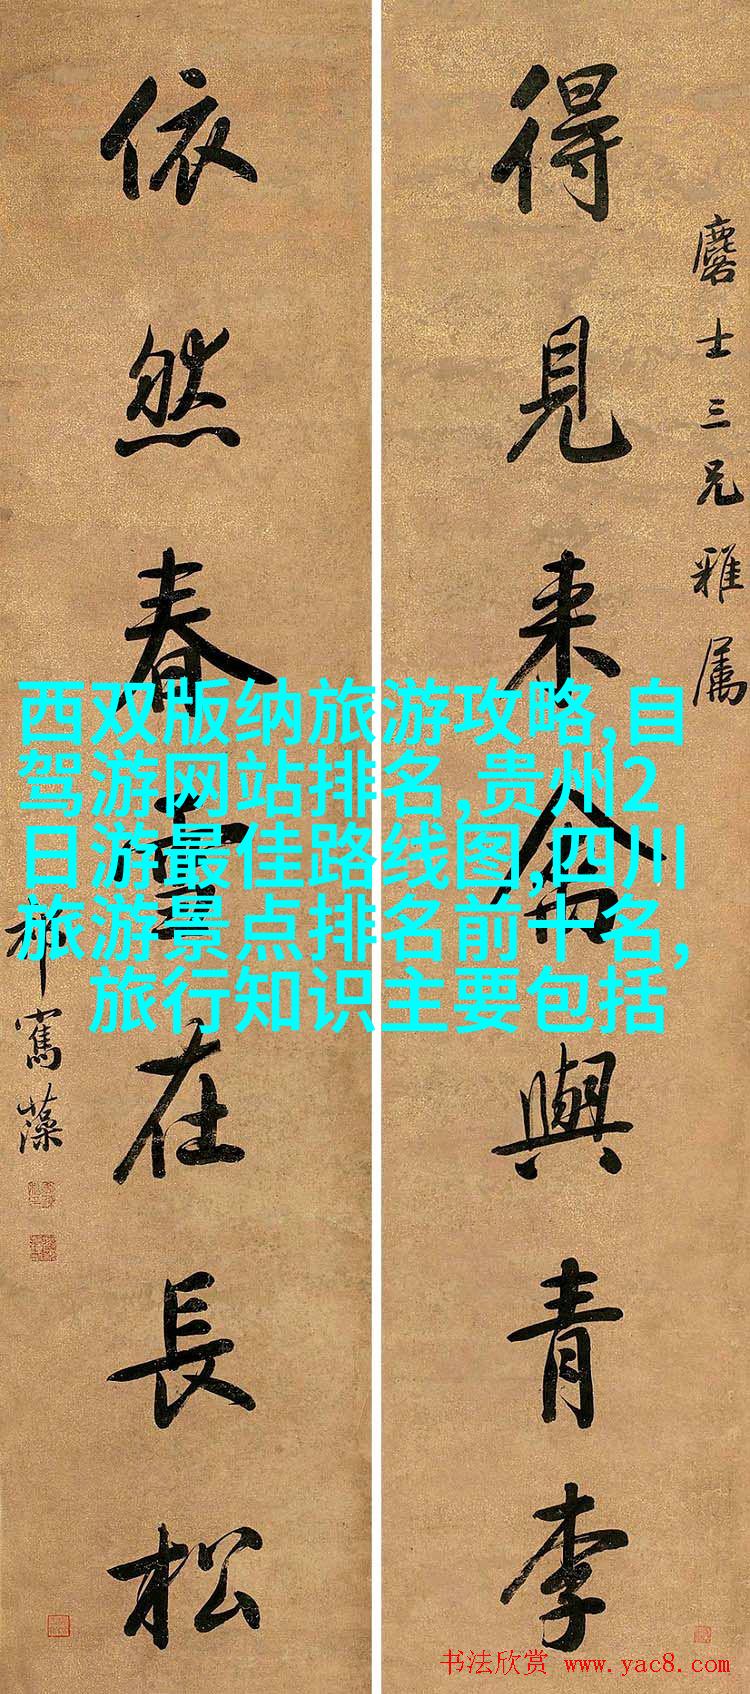 麐士三兄雅属
得見来禽與青李
依然春在長松
祁寯藻
西双版纳旅游攻略,自
驾游网站排名,贵州2
日游最佳路线图,四川
旅游景点排名前十名,
旅行知识主要包括
书法欣赏 www.yac8.com